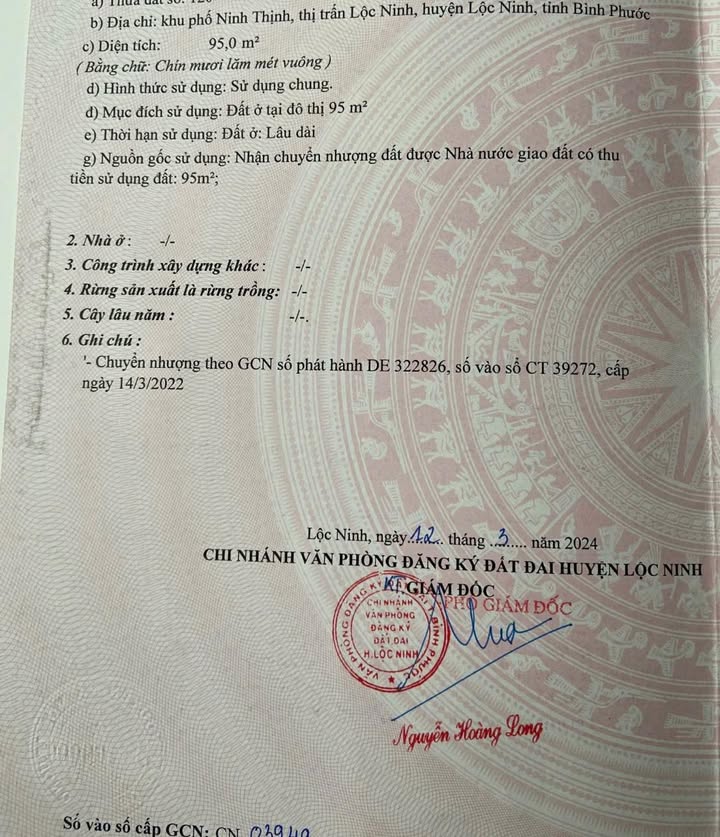 a) Thửa đất số: 120
b) Địa chỉ: khu phố Ninh Thịnh, thị trấn Lộc Ninh, huyện Lộc Ninh, tỉnh Bình Phước
c) Diện tích: 95,0 m²
( Bằng chữ: Chín mươi lăm mét vuông )
d) Hình thức sử dụng: Sử dụng chung.
đ) Mục đích sử dụng: Đất ở tại đô thị 95 m²
e) Thời hạn sử dụng: Đất ở: Lâu dài
g) Nguồn gốc sử dụng: Nhận chuyển nhượng đất được Nhà nước giao đất có thu
tiền sử dụng đất: 95m²;
2. Nhà ở : -/-
3. Công trình xây dựng khác : -/-
4. Rừng sản xuất là rừng trồng: -/-
5. Cây lâu năm : -/-.
6. Ghi chú :
'- Chuyển nhượng theo GCN số phát hành DE 322826, số vào sổ CT 39272, cấp
ngày 14/3/2022
Lộc Ninh, ngày 12 tháng 3 năm 2024
CHI NHÁNH VĂN PHÒNG ĐĂNG KÝ ĐẤT ĐAI HUYỆN LỘC NINH
KT. GIÁM ĐỐC
PHÓ GIÁM ĐỐC
VĂN PHÒNG ĐĂNG KÝ ĐẤT ĐAI T. BÌNH PHƯỚC
CHI NHÁNH
VĂN PHÒNG
ĐĂNG KÝ
ĐẤT ĐAI
H.LỘC NINH
Nguyễn Hoàng Long
Số vào sổ cấp GCN: CN